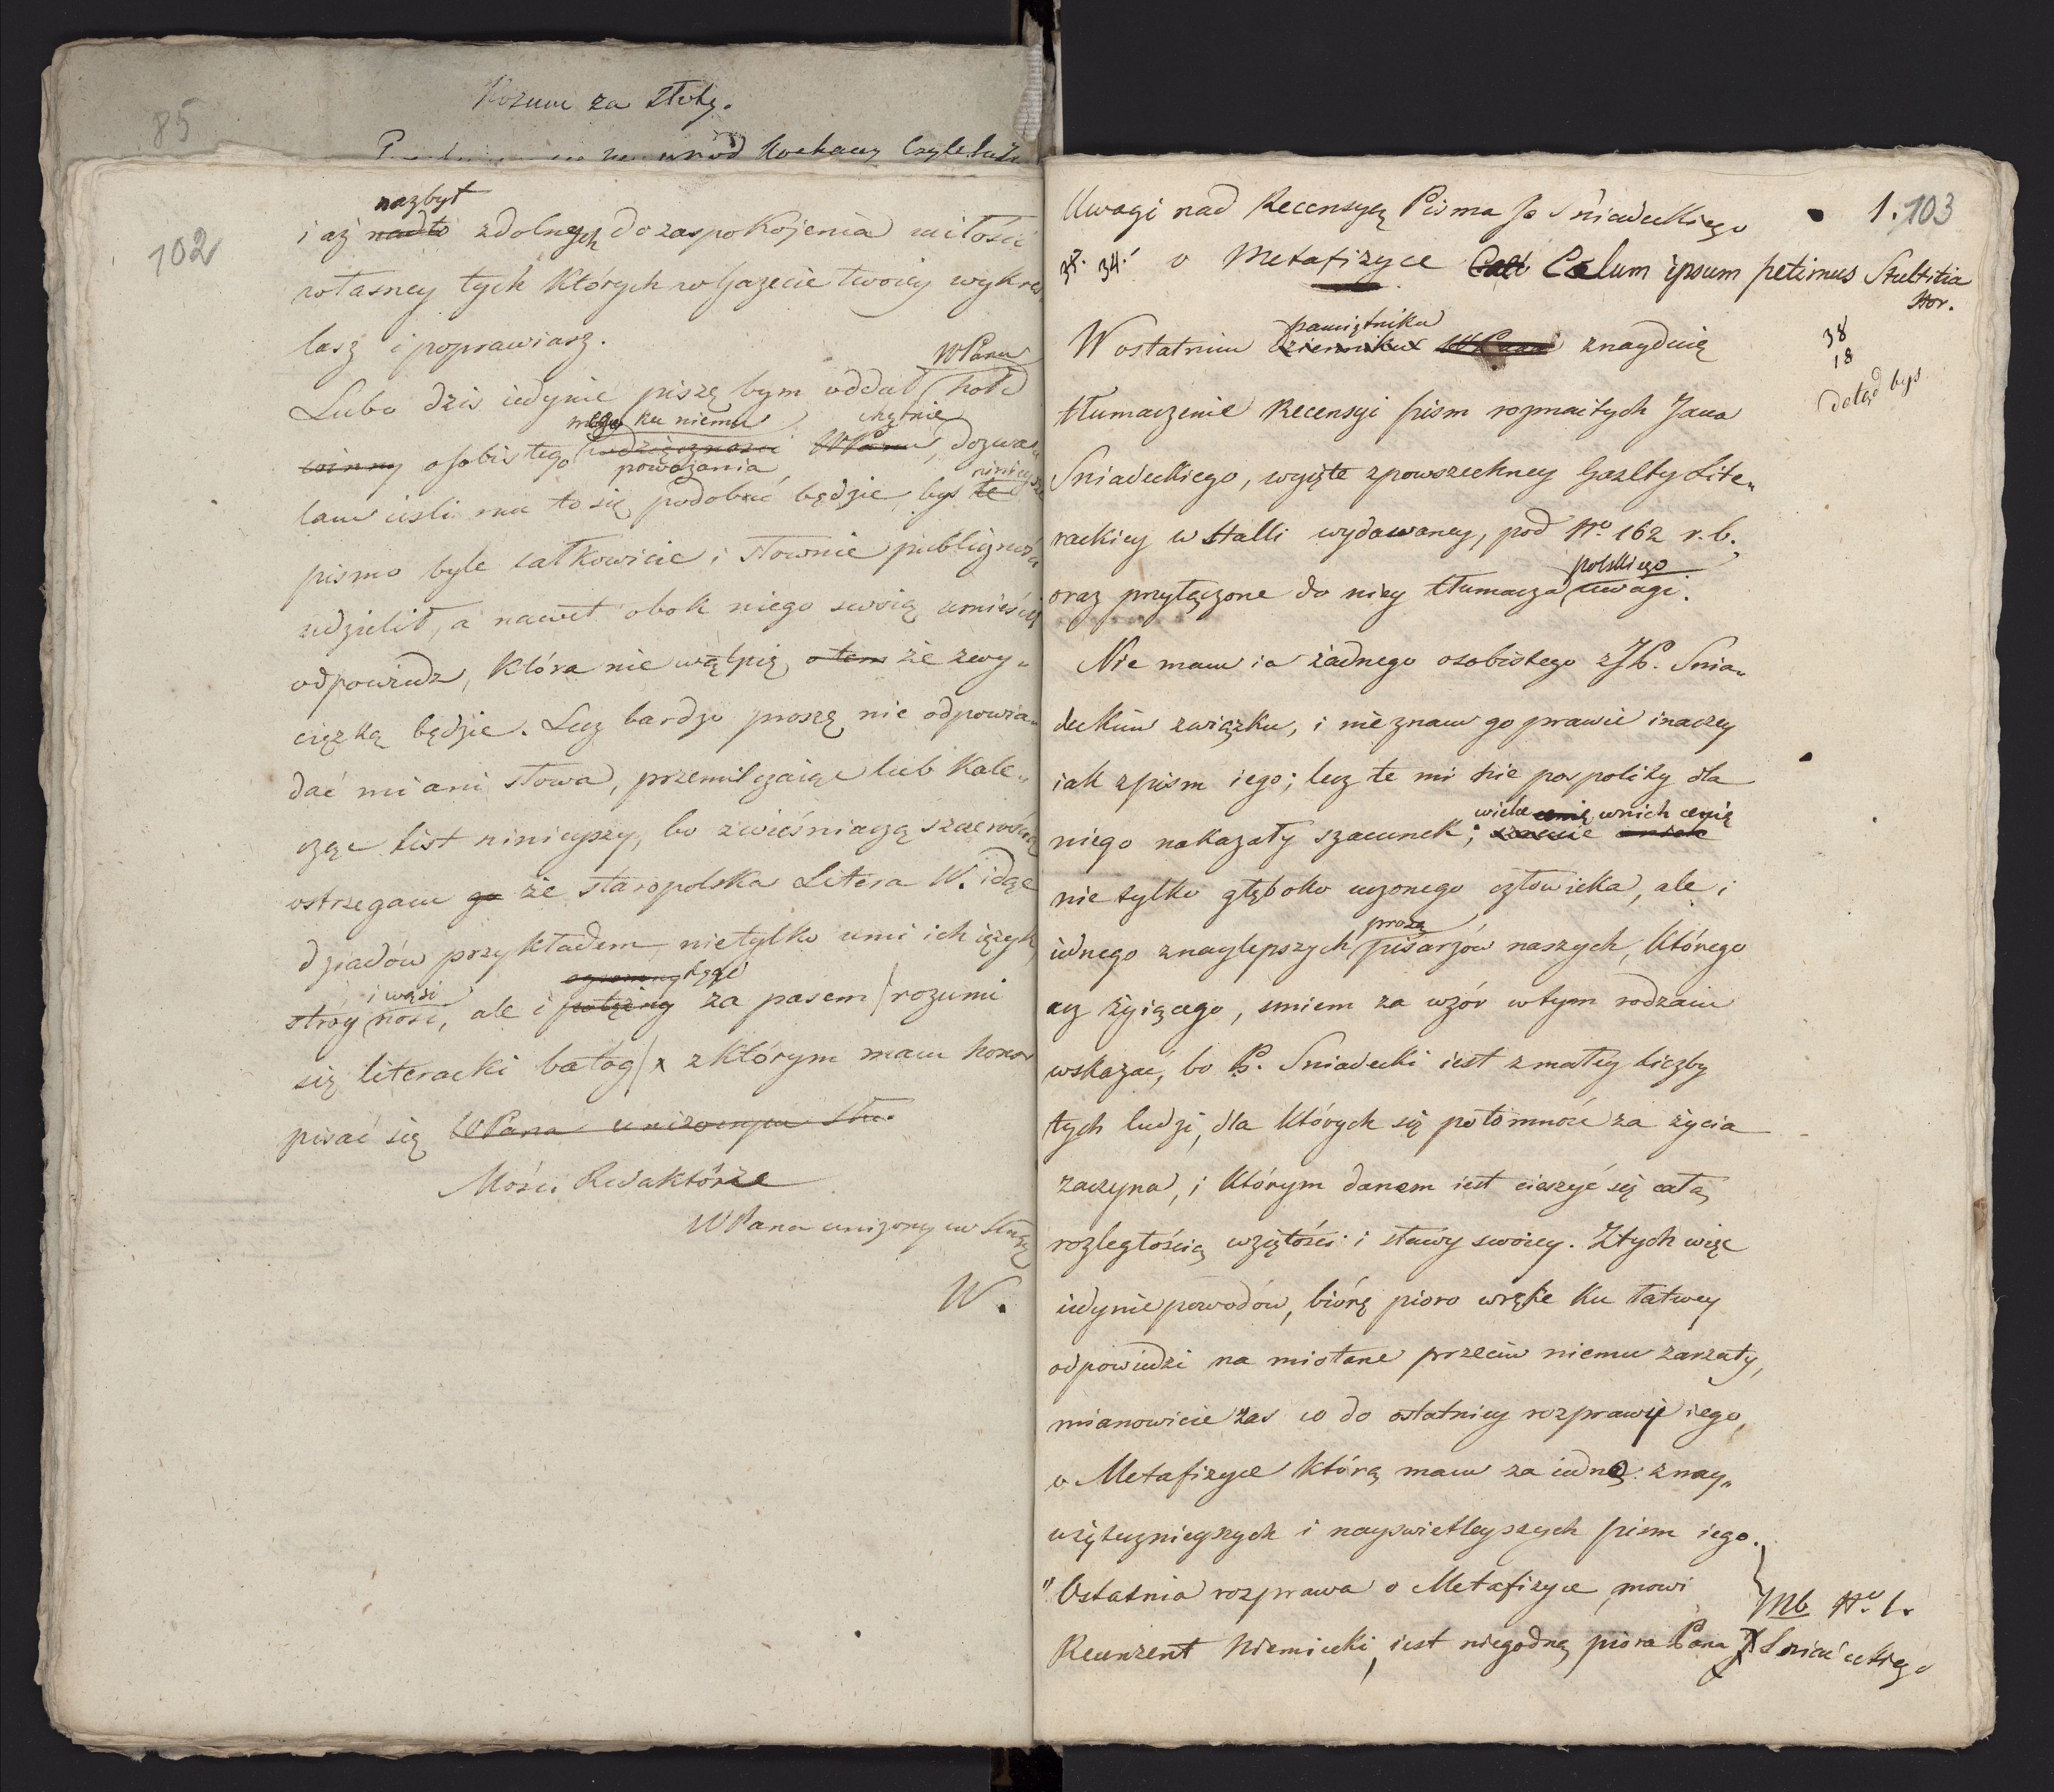 85
Rozum za Szlotę.
kochany Czytelniku
102
nazbyt
i aż nadto zdolnych do zaspokojenia miłości
własney tych których w Gazecie twoiey wykre
lasz i poprawiasz.
WPanu
Lubo dziś iedynie piszę bym oddał hołd
mego ku niemu chętnie
winny osobistego wdzięczności WPanu, dozwa
poważania ninieysze
lam ieśli mu to się podobać będzie, byś te
pismo byle całkowicie i słownie publiczności
udzielił, a nawet obok niego swoią umieścił
odpowiedz, która nie wątpię, o tem że zwy„
cięzką będzie. Lecz bardzo proszę nie odpowia„
dać mi ani słowa, przemilczaiąc lub kale„
cząc list ninieyszy, bo z wieśniaczą szczerością
ostrzegam go że staropolska Litera W. idąc
dziadów przykładem, nietylko umie ich ięzyk,
i wąsi ogromny tęgi
stróy nosić, ale i potężny za pasem / rozumi
się literacki batog / x z którym mam honor
pisać się WPana unizonym Słu.
Mości Redaktórze
WPana unizonym Sługą
W.
1. 103
Uwagi nad Recenzyą Pisma Jo Sniadeckiego
34. o Metafizyce Celi Cœlum ipsum petimus Stultitia
Hor.
38
18
dotąd byś
pamiętniku
W ostatnim dzienniku WPana znayduię
tłumaczenie Recenzyi pism rozmaitych Jana
Sniadeckiego, wyięte z powszechney Gazety Lite„
rackiey w Halli wydawaney, pod No. 162 r. b.,
polskiego
oraz przyłączone do niey tłumacza uwagi.
Nie mam ia żadnego osobistego z JP. Snia„
deckim związku, i nie znam go prawie inaczey
iak z pism iego; lecz te mi nie pospolity dla
wielce cenię w nich cenię
niego nakazały szacunek;
nie tylko głęboko uczonego człowieka, ale i
prozą
iednego z naylepszych pisarzów naszych, którego
acz żyiącego, smiem za wzór w tym rodzaiu
wskazać, bo P. Sniadecki iest z małey liczby
tych ludzi, dla których się potomność za życia
zaczyna, i którym danem iest cieszyć się całą
rozległością wziętości i sławy swoiey. Z tych więc
iedynie powodów, biorę pioro w ręke ku łatwey
odpowiedzi na miotane przeciw niemu zarzuty,
mianowicie zas co do ostatniey rozprawy iego,
o Metafizyce którą mam za iedną z nay„
użytecznieyszych i nayswietleyszych pism iego.
"Ostatnia rozprawa o Metafizyce, mowi
Mb No. 1.
Recenzent Niemiecki, iest niegodną pióra Pana Sniadeckiego